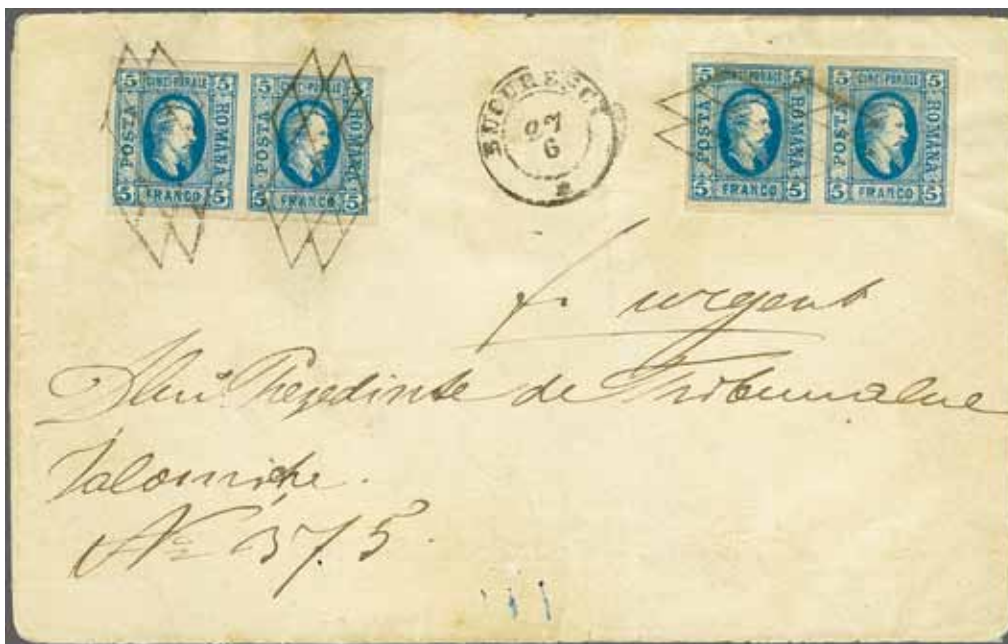 5 CINCI PARALE 5
POSTA
ROMANA
5 FRANCO 5
5 CINCI PARALE 5
POSTA
ROMANA
5 FRANCO 5
BUCURESCI
27
6
5 CINCI PARALE 5
POSTA
ROMANA
5 FRANCO 5
5 CINCI PARALE 5
POSTA
ROMANA
5 FRANCO 5
f. urgent
Prezedinte de Tribunalue
Jalomiţe.
No 375.